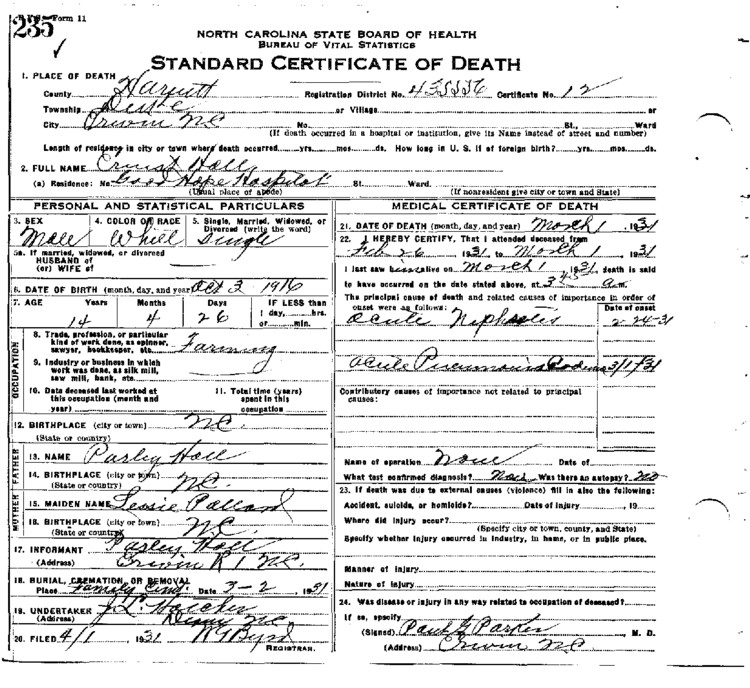 235
Form 11
NORTH CAROLINA STATE BOARD OF HEALTH
BUREAU OF VITAL STATISTICS
STANDARD CERTIFICATE OF DEATH
1. PLACE OF DEATH
County Harnett Registration District No. Certificate No. 12
Township Duke or Village or
City Erwin NC No. St., Ward
(If death occurred in a hospital or institution, give its Name instead of street and number)
Length of residence in city or town where death occurred yrs. mos. ds. How long in U. S. if of foreign birth? yrs. mos. ds.
2. FULL NAME Ernest Hall
(a) Residence: No. Good Hope Hospital St. Ward.
(Usual place of abode) (If nonresident give city or town and State)
PERSONAL AND STATISTICAL PARTICULARS
3. SEX 4. COLOR OR RACE 5. Single, Married, Widowed, or Divorced (write the word)
Male White Single
5a. If married, widowed, or divorced
HUSBAND of
(or) WIFE of
6. DATE OF BIRTH (month, day, and year) Oct 3 1916
7. AGE Years Months Days IF LESS than
14 4 26 1 day, hrs.
or min.
OCCUPATION
8. Trade, profession, or particular
kind of work done, as spinner,
sawyer, bookkeeper, etc. Farming
9. Industry or business in which
work was done, as silk mill,
saw mill, bank, etc.
10. Date deceased last worked at
this occupation (month and
year)
11. Total time (years)
spent in this
occupation
12. BIRTHPLACE (city or town) NC.
(State or country)
FATHER
13. NAME Parley Hall
14. BIRTHPLACE (city or town)
(State or country) NC.
MOTHER
15. MAIDEN NAME Lessie
16. BIRTHPLACE (city or town) NC
(State or country)
17. INFORMANT Parley Hall
(Address) Erwin R 1 NC.
18. BURIAL, CREMATION, OR REMOVAL
Place Family Date 3-2, 1931
19. UNDERTAKER J.L. Hatcher
(Address) NC
20. FILED 4/1 1931
REGISTRAR.
MEDICAL CERTIFICATE OF DEATH
21. DATE OF DEATH (month, day, and year) March 1 1931
22. I HEREBY CERTIFY, That I attended deceased from
Feb 26 1931 to March 1, 1931
I last saw him alive on March 1, 1931, death is said
to have occurred on the date stated above, at a m.
The principal cause of death and related causes of importance in order of
onset were as follows: Date of onset
Acute 2-24-31
Acute 3/1/31
Contributory causes of importance not related to principal
causes:
Name of operation None Date of
What test confirmed diagnosis? Was there an autopsy? no
23. If death was due to external causes (violence) fill in also the following:
Accident, suicide, or homicide? Date of injury, 19
Where did injury occur?
(Specify city or town, county, and State)
Specify whether injury occurred in industry, in home, or in public place.
Manner of injury
Nature of injury
24. Was disease or injury in any way related to occupation of deceased?
If so, specify
(Signed) Paul G Parker M. D.
(Address) Erwin NC